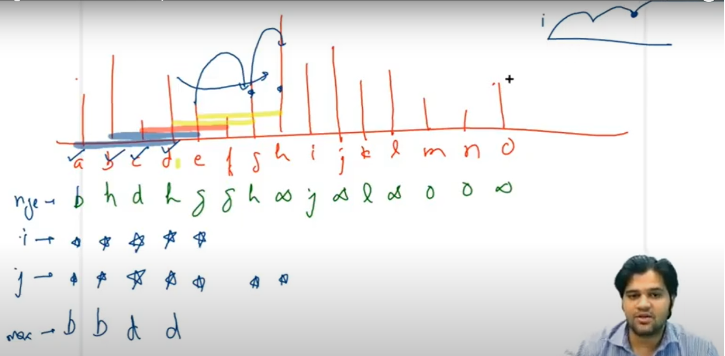 i
a b c d e f g h i j k l m n o
nge → b h d h g g h ∞ j ∞ l ∞ o o ∞
i →
j →
max → b b d d